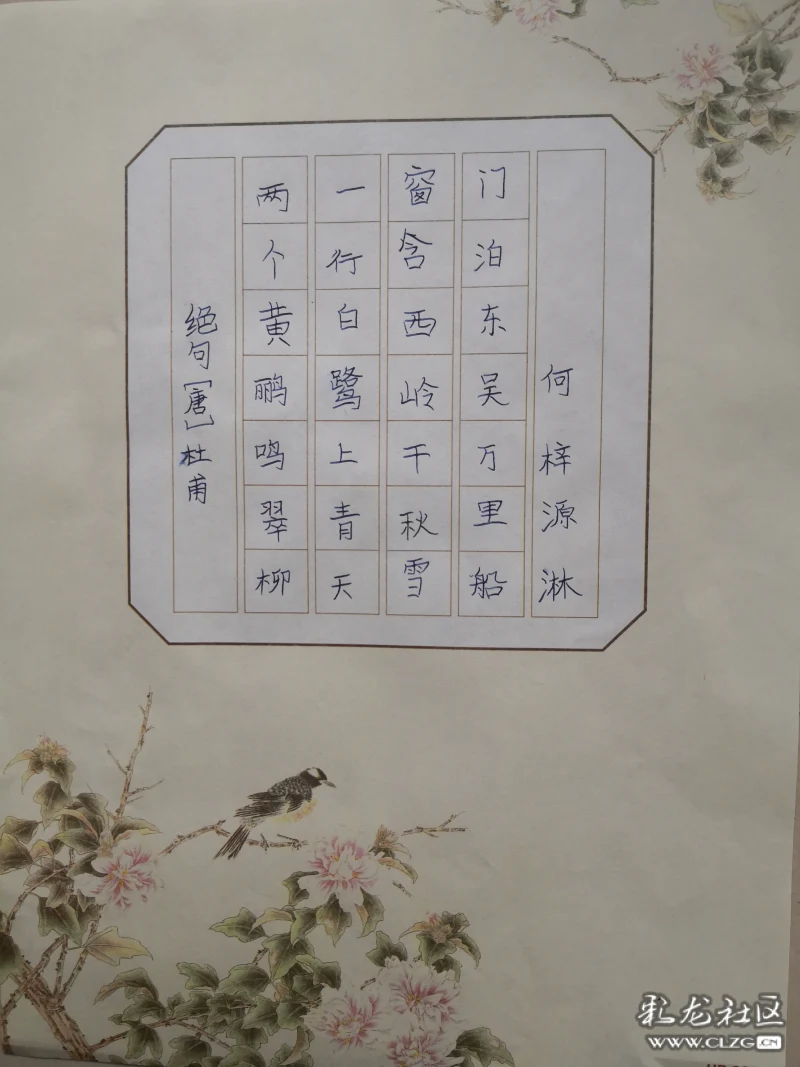 绝句[唐]杜甫
两个黄鹂鸣翠柳
一行白鹭上青天
窗含西岭千秋雪
门泊东吴万里船
何梓源淋
彩龙社区
WWW.CLZG.CN